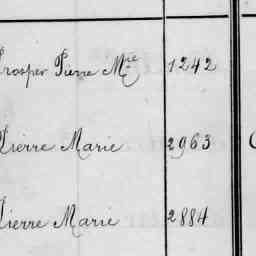 Prosper Pierre Mie 1242
Pierre Marie 2963
Pierre Marie 2884